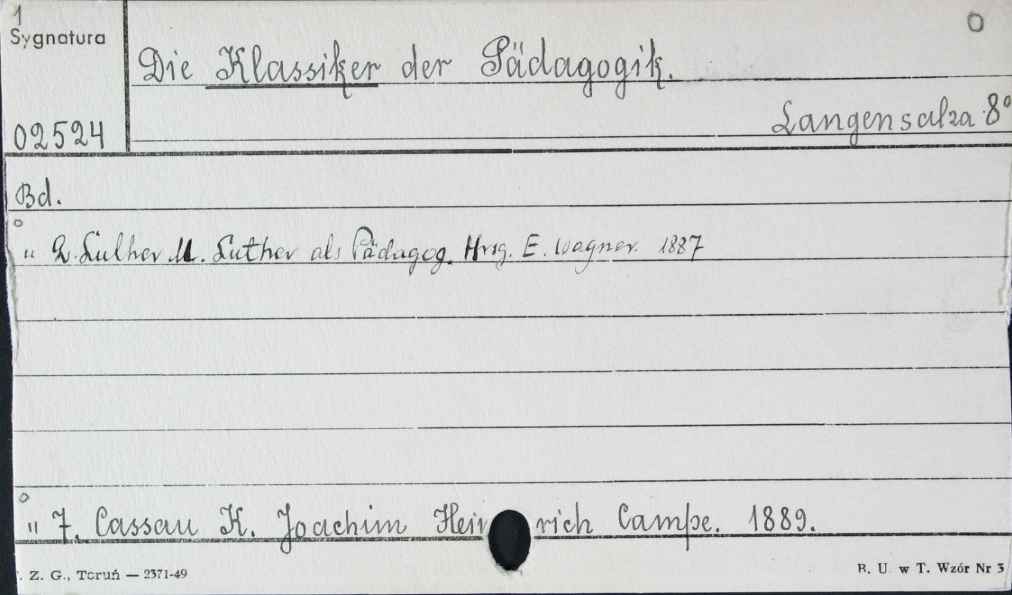 1
Sygnatura
Die Klassiker der Pädagogik.
Langensalza 8°
02524
Bd.
" 2. Luther M. Luther als Pädagog. Hrsg. E. Wagner. 1887
" 7. Cassau K. Joachim Heinrich Campe. 1889.
Z. G., Toruń — 2371-49
B. U. w T. Wzór Nr 3